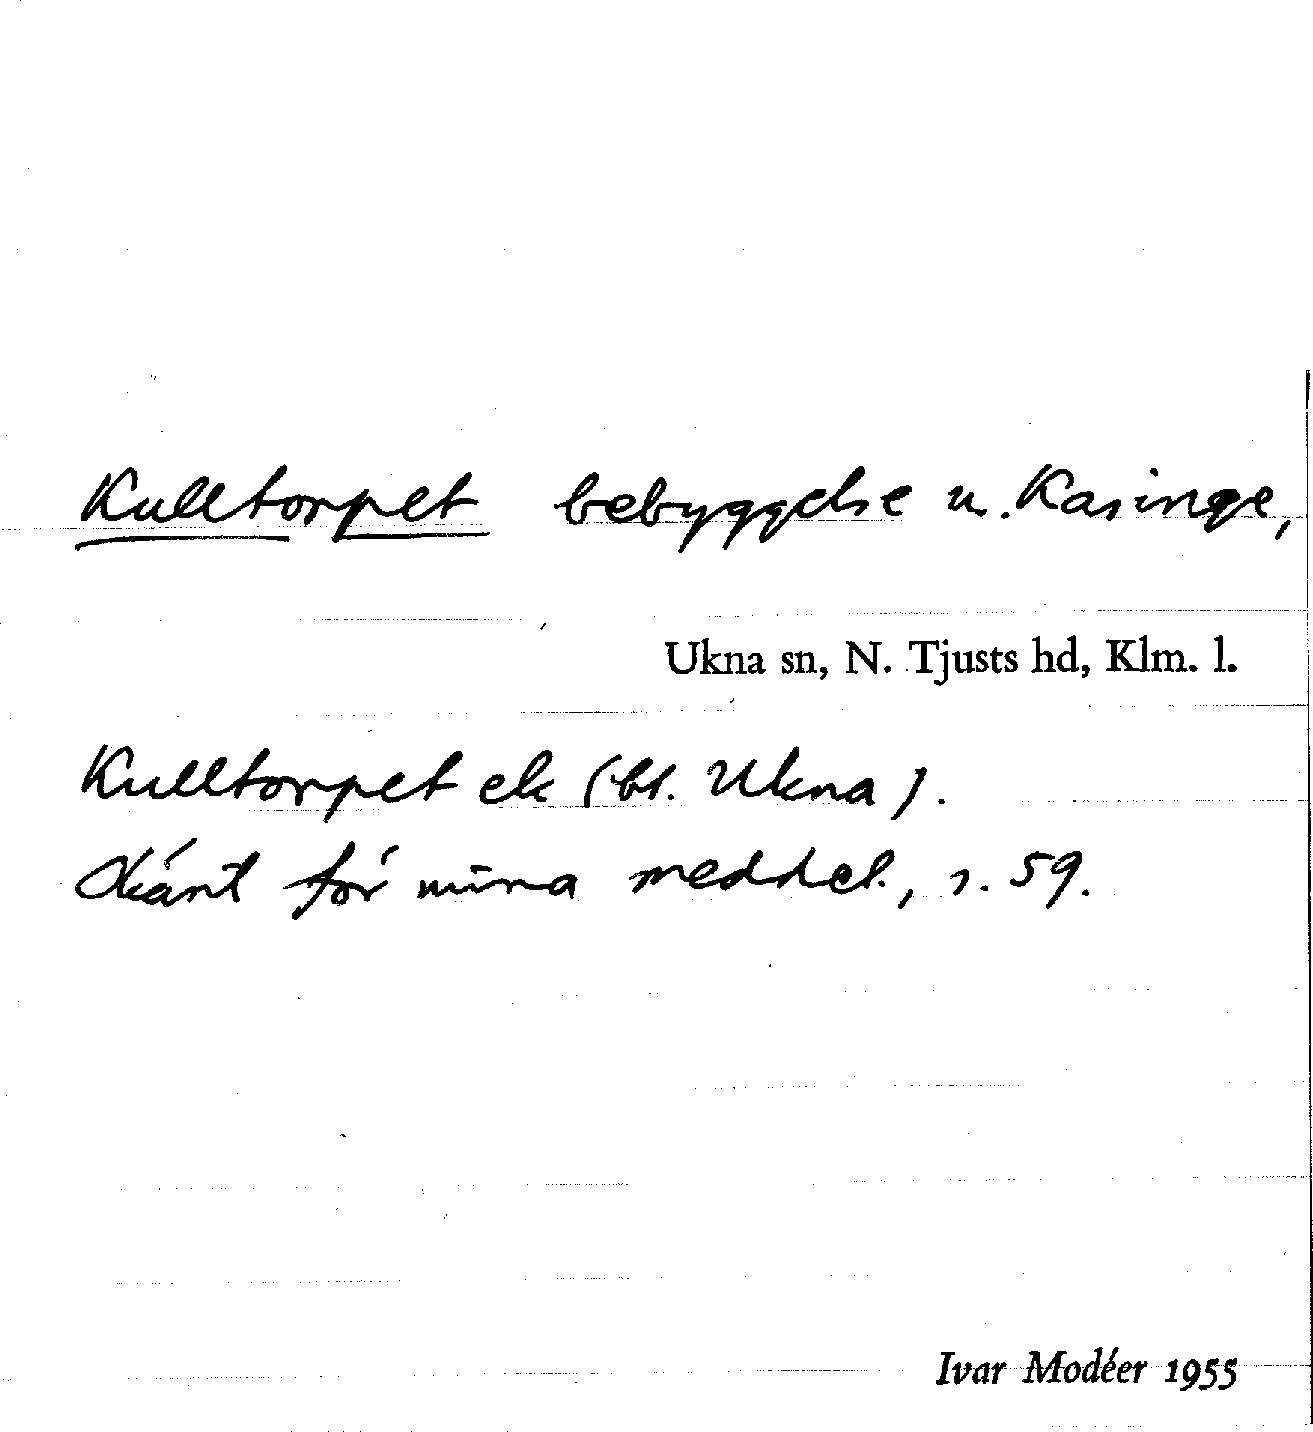 Kulltorpet bebyggelse u. Kasinge,
Ukna sn, N. Tjusts hd, Klm. l.
Kulltorpet ek (bl. Ukna).
Okänt för mina meddel., s. 59.
Ivar Modéer 1955